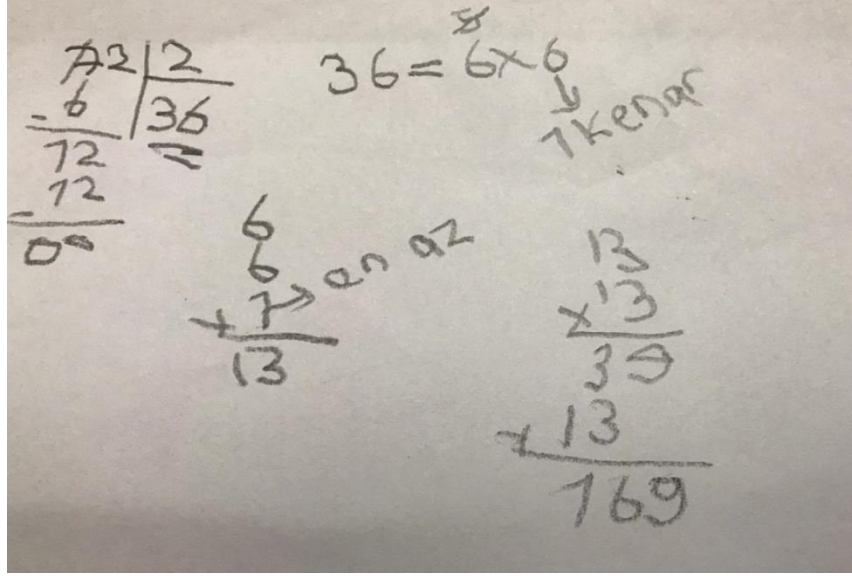 72 | 2
- 6 | 36
12
- 12
00
36 = 6 x 6
1 kenar
6
6
+ 1 → en az
13
13
x 13
39
+ 13
169